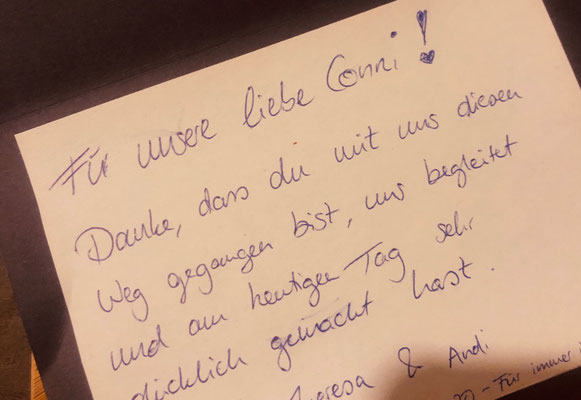 Für unsere liebe Conni!
Danke, dass du mit uns diesen
Weg gegangen bist, uns begleitet
und am heutigen Tag sehr
glücklich gemacht hast.
Theresa & Andi
- Für immer